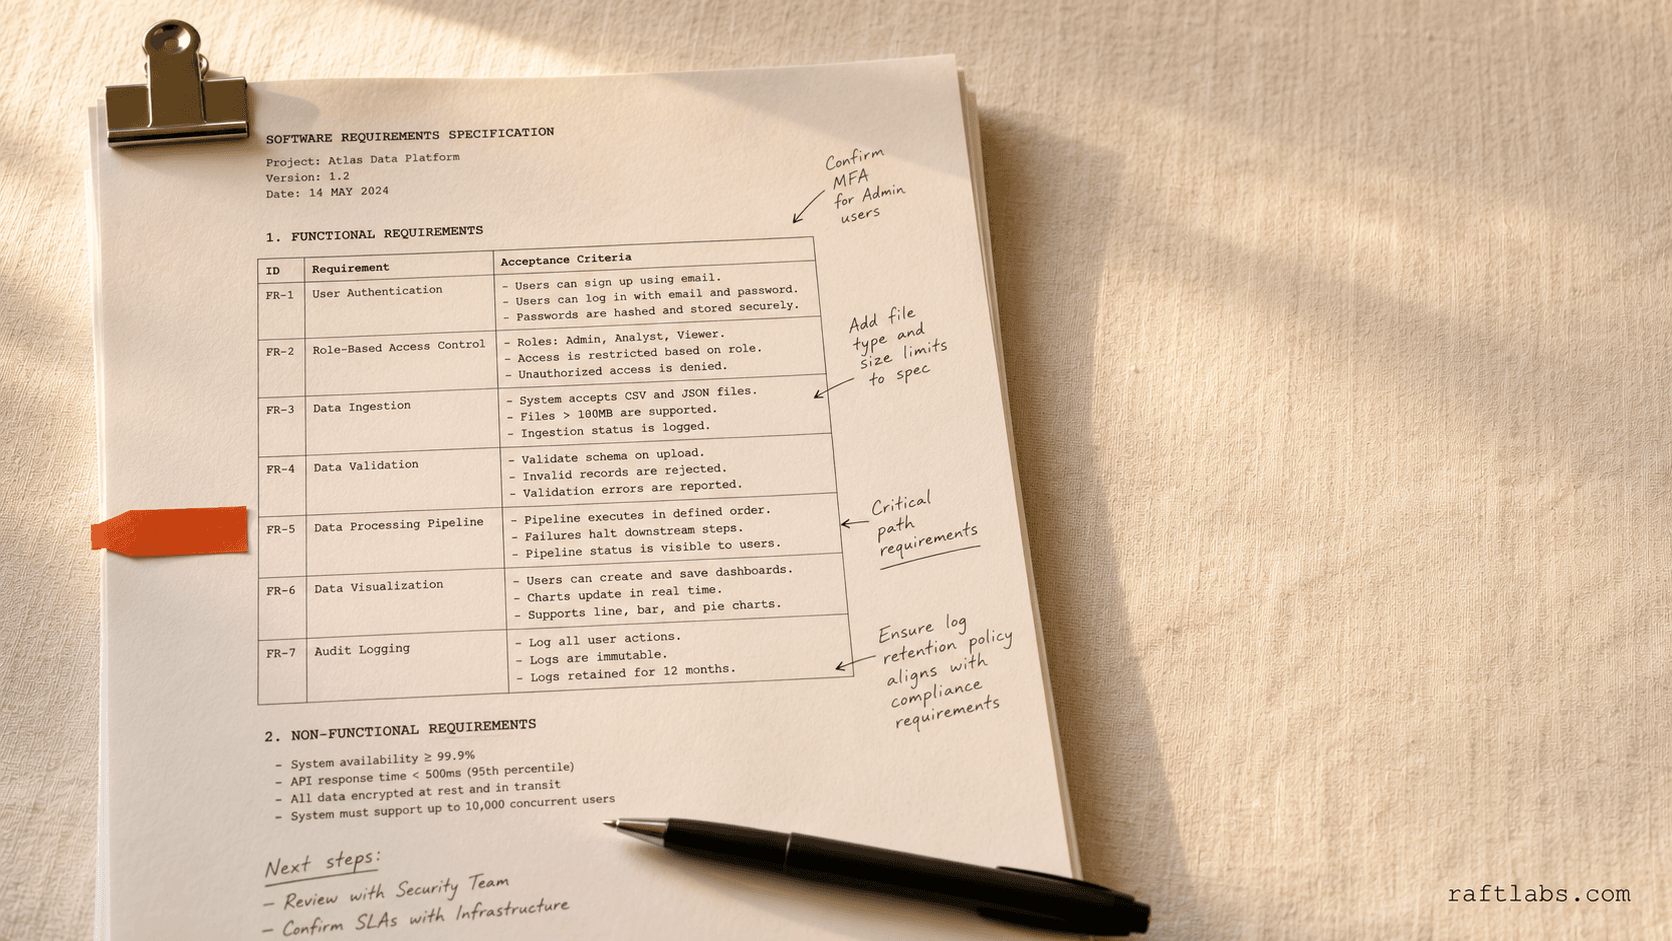 SOFTWARE REQUIREMENTS SPECIFICATION
Project: Atlas Data Platform
Version: 1.2
Date: 14 MAY 2024
1. FUNCTIONAL REQUIREMENTS
ID Requirement Acceptance Criteria
FR-1 User Authentication
- Users can sign up using email.
- Users can log in with email and password.
- Passwords are hashed and stored securely.
FR-2 Role-Based Access Control
- Roles: Admin, Analyst, Viewer.
- Access is restricted based on role.
- Unauthorized access is denied.
FR-3 Data Ingestion
- System accepts CSV and JSON files.
- Files > 100MB are supported.
- Ingestion status is logged.
FR-4 Data Validation
- Validate schema on upload.
- Invalid records are rejected.
- Validation errors are reported.
FR-5 Data Processing Pipeline
- Pipeline executes in defined order.
- Failures halt downstream steps.
- Pipeline status is visible to users.
FR-6 Data Visualization
- Users can create and save dashboards.
- Charts update in real time.
- Supports line, bar, and pie charts.
FR-7 Audit Logging
- Log all user actions.
- Logs are immutable.
- Logs retained for 12 months.
Confirm
MFA
for Admin
users
Add file
type and
size limits
to spec
Critical
path
requirements
Ensure log
retention policy
aligns with
compliance
requirements
2. NON-FUNCTIONAL REQUIREMENTS
- System availability ≥ 99.9%
- API response time < 500ms (95th percentile)
- All data encrypted at rest and in transit
- System must support up to 10,000 concurrent users
Next steps:
- Review with Security Team
- Confirm SLAs with Infrastructure
raftlabs.com